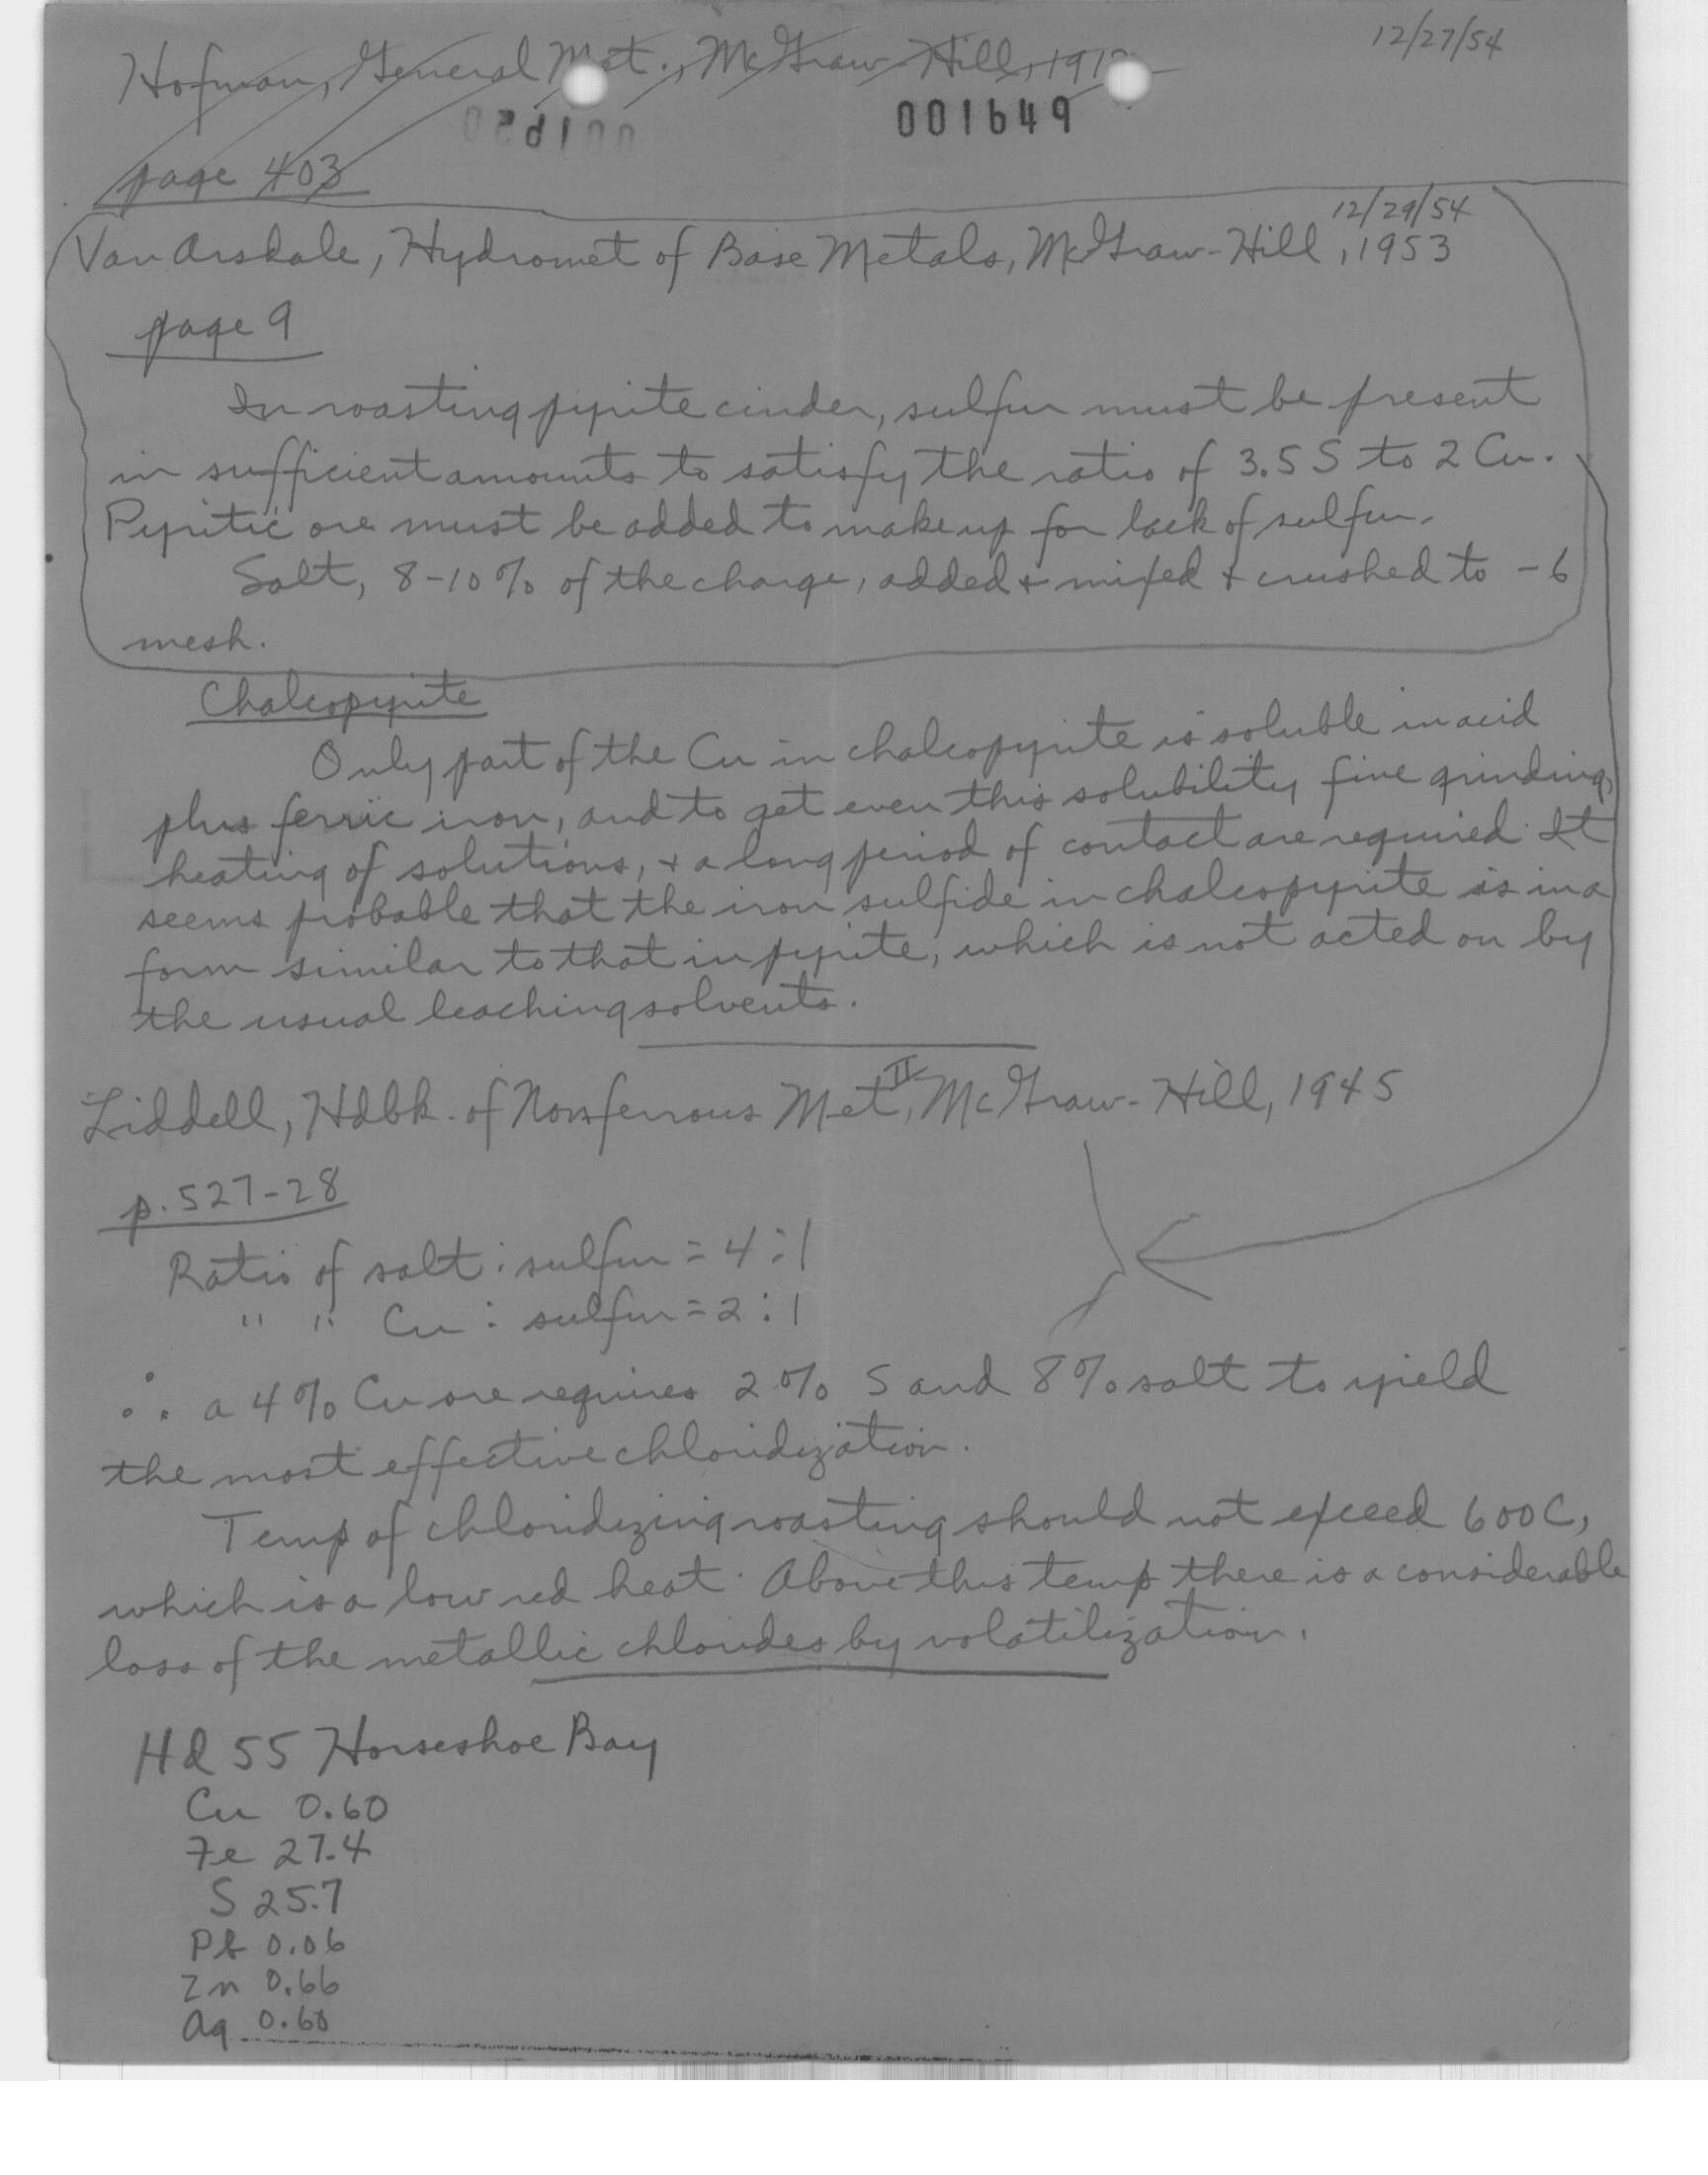 12/27/54
Hofman, General Met., McGraw-Hill, 191
001649
page 403
12/29/54
Van Arsdale, Hydromet of Base Metals, McGraw-Hill, 1953
page 9
In roasting pyrite cinder, sulfur must be present
in sufficient amounts to satisfy the ratio of 3.5 S to 2 Cu.
Pyritic ore must be added to make up for lack of sulfur.
Salt, 8-10% of the charge, added & mixed & crushed to -6
mesh.
Chalcopyrite
Only part of the Cu in chalcopyrite is soluble in acid
plus ferric iron, and to get even this solubility fine grinding,
heating of solutions, & a long period of contact are required. It
seems probable that the iron sulfide in chalcopyrite is in a
form similar to that in pyrite, which is not acted on by
the usual leaching solvents.
Liddell, Hdbk. of Nonferrous Met II, McGraw-Hill, 1945
p. 527-28
Ratio of salt : sulfur = 4:1
" " Cu : sulfur = 2:1
∴ a 4% Cu ore requires 2% S and 8% salt to yield
the most effective chloridization.
Temp of chloridizing roasting should not exceed 600 C,
which is a low red heat. Above this temp there is a considerable
loss of the metallic chlorides by volatilization.
Hd 55 Horseshoe Bay
Cu 0.60
Fe 27.4
S 25.7
Pb 0.06
Zn 0.66
Ag 0.60